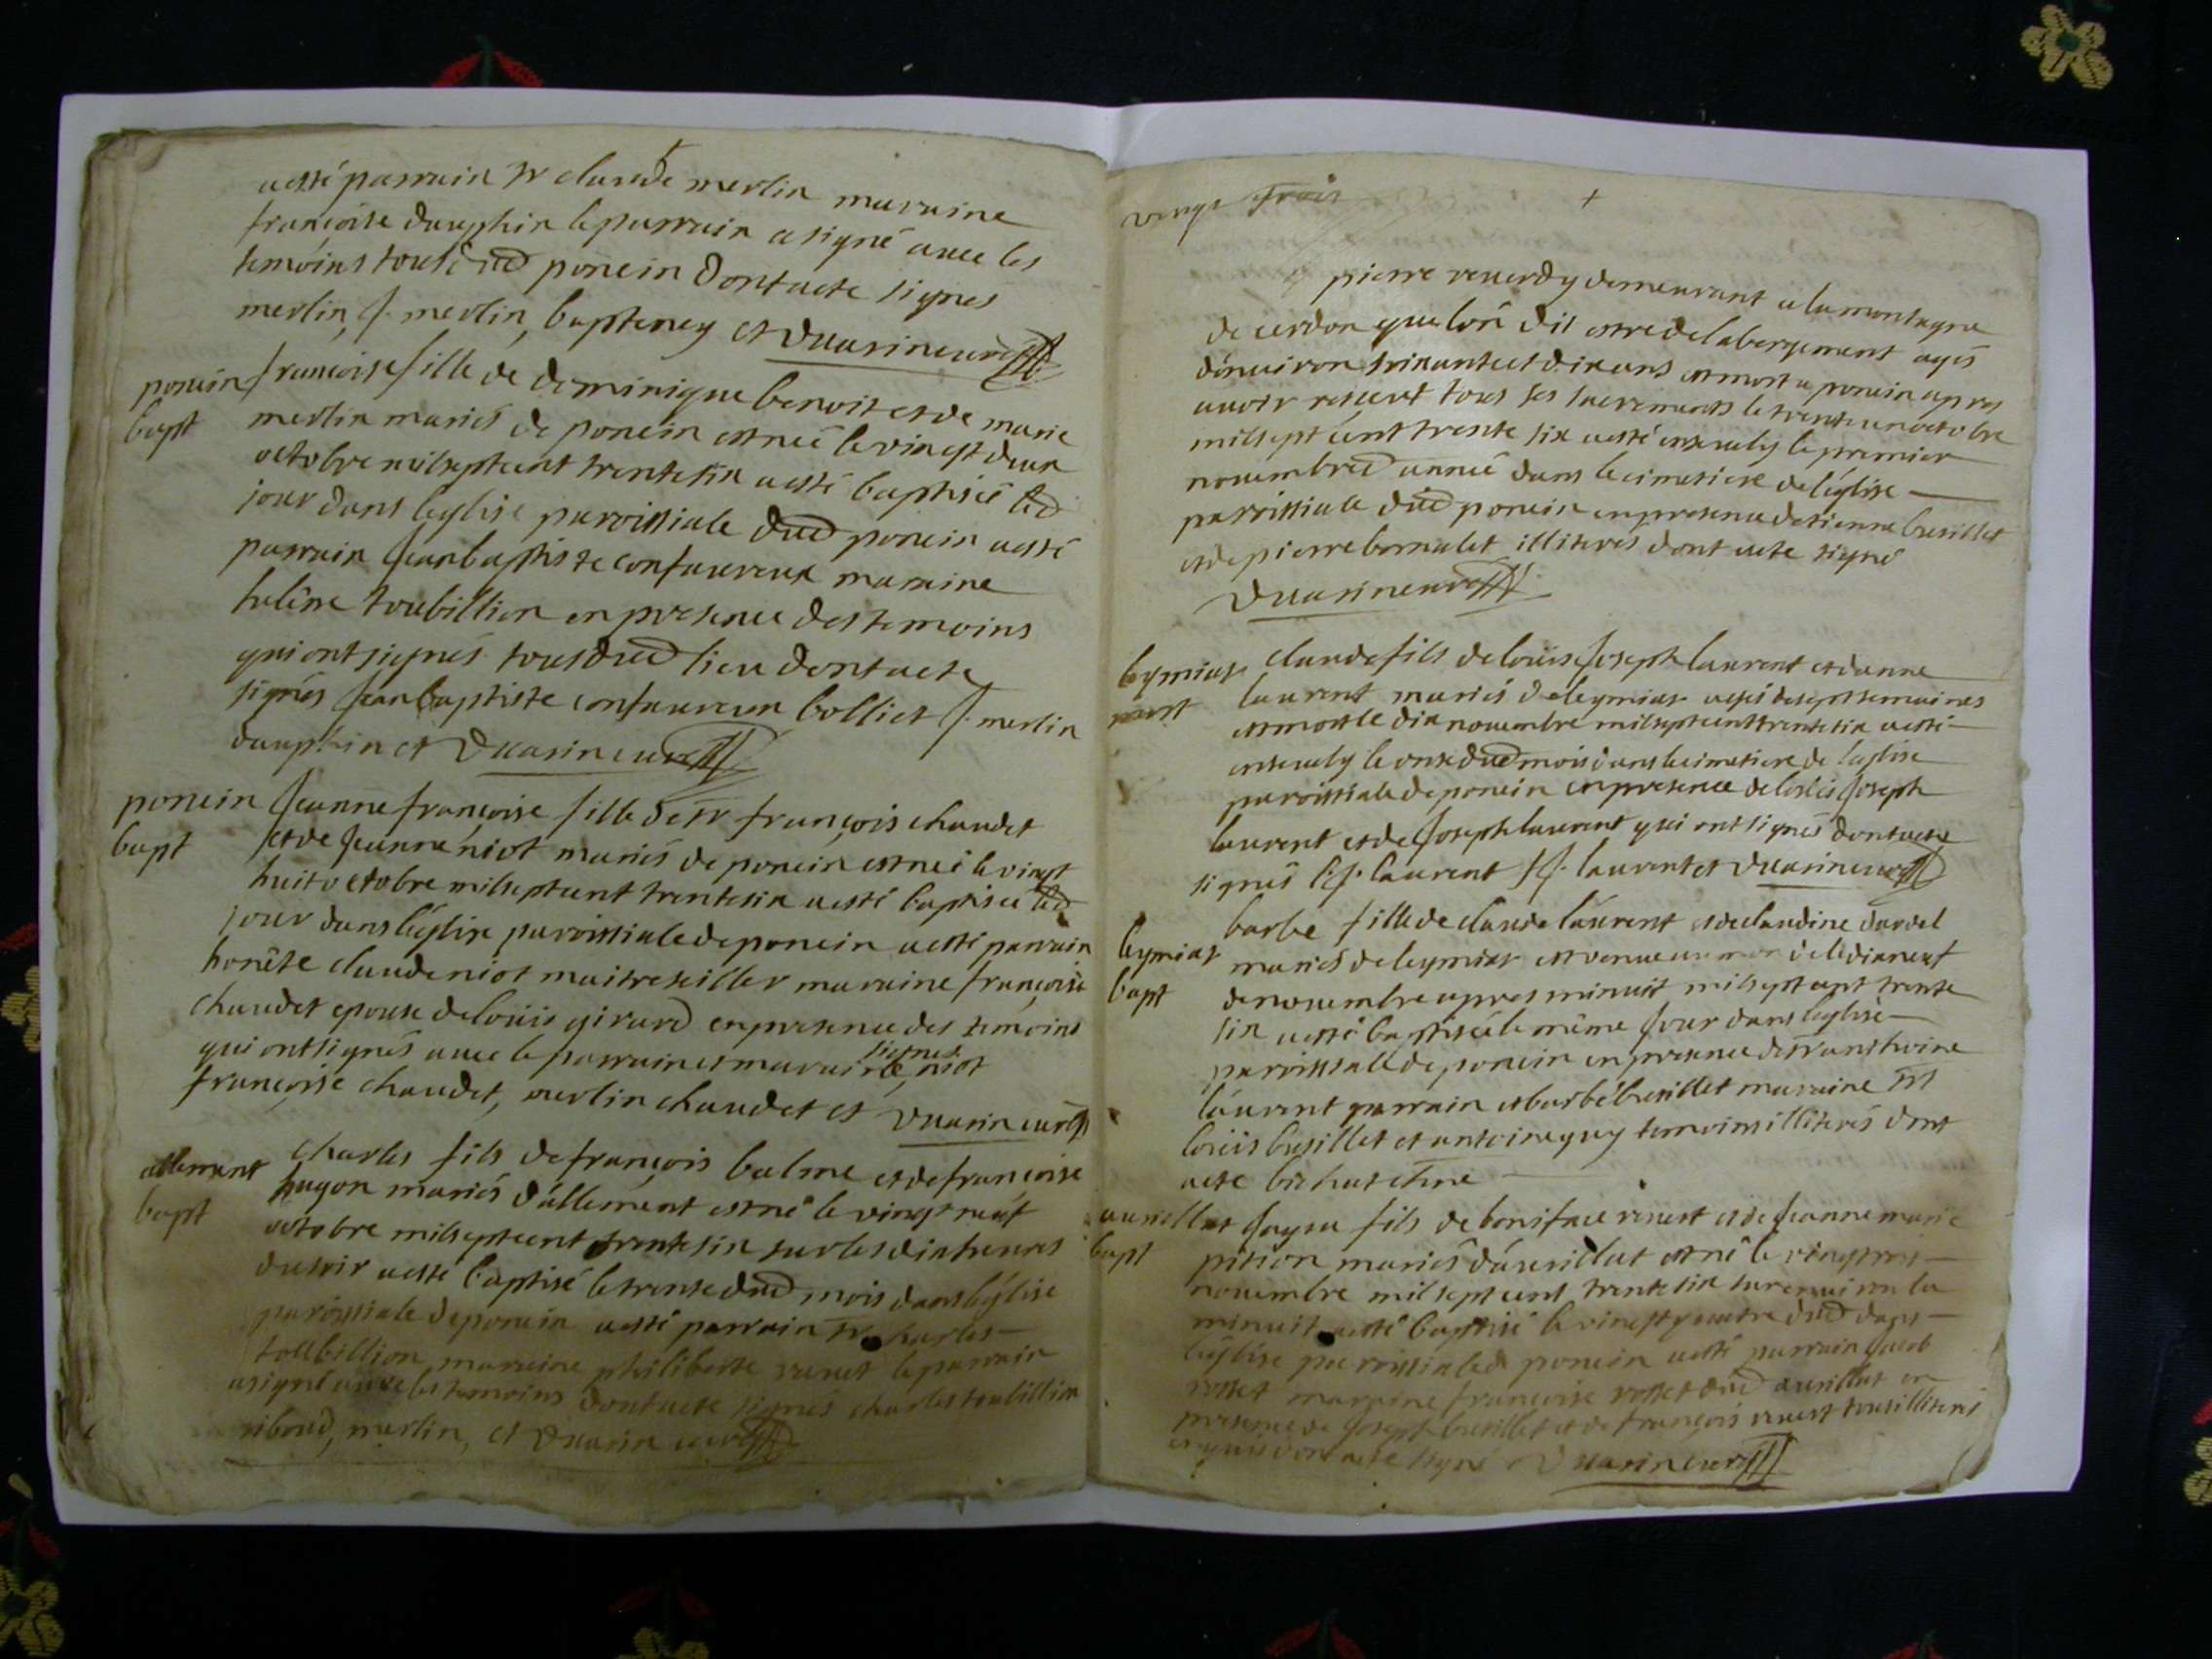 a esté parrain sr claude merlin maraine
françoise dauphin le parrain a signé avec les
temoins tous dud poncin dont acte signes
merlin, J. merlin, bapteney et Duarin curé
poncin françoise fille de dominique benoit et de marie
bapt merlin mariés de poncin est née le vingt deux
octobre mil sept cent trente six a esté baptisée led
jour dans leglise paroissiale dud poncin a esté
parrain Jean baptiste confavreux maraine
heléne toubillion en presence des temoins
qui ont signés tous dud lieu dont acte
signés Jean baptiste confavreux bolliet J. merlin
dauphin et Duarin curé
poncin Jeanne françoise fille de sr françois chaudet
bapt et de Jeanne niot mariés de poncin est née le vingt
huit octobre mil sept cent trente six a esté baptisée led
jour dans léglise paroissiale de poncin a esté parrain
honéte claude niot maitre maraine françoise
chaudet epouse de loüis girard en presence des temoins
qui ont signés avec le parrain et maraine signes niot
françoise chaudet, merlin chaudet et Duarin curé
allement charles fils de françois balme et de françoise
bapt hugon mariés dállement est né le vingt neuf
octobre mil sept cent trente six sur les dix heures
du soir a esté baptisé le trente dud mois dans léglise
paroissiale de poncin a esté parrain sr charles
toubillion maraine philiberte le parrain
a signé avec les temoins dont acte signés charles toubillion
riboud, merlin, et Duarin curé
vingt trois
pierre reverdy demeurant a la montagne
de cerdon que lón dit estre de labergement agés
dénviron soixante et dix ans est mort a poncin apres
avoir receut tous ses sacrements le trente un octobre
mil sept cent trente six a esté ensevely le premier
novembre d année dans le cimetiere de léglise
parroissiale dud poncin en presence détienne busillet
et de pierre bornalet illiterés dont acte signé
Duarin curé
leymiat claude fils de loüis Joseph laurent et danne
mort laurent mariés de leymiat agés de sept semaines
est mort le dix novembre mil sept cent trente six a esté
ensevely le onze dud mois dans le cimetiere de leglise
paroissiale de poncin en presence de loüis Joseph
laurent et de Joseph laurent qui ont signés dont acte
signés l. J. laurent J. laurent et Duarin curé
barbe fille de claude laurent et de claudine dardel
leymiat mariés de leymiat est venue au monde le dix neuf
bapt de novembre apres minuit mil sept cent trente
six a esté baptisée le même Jour dans leglise
paroissiale de poncin en presence
laurent parrain et barbe busillet maraine
loüis busillet et antoine guy temoins illiterés dont
acte
avrillat fils de boniface et de Jeanne marie
bapt pition mariés dávrillat est né le vingt trois
novembre mil sept cent trente six sur environ la
minuit a esté baptisé le vingt quatre dud dans
léglise paroissiale de poncin a esté parrain Jacob
rosset maraine françoise rosset dud avrillat en
presence de Joseph busillet et de françois tous illiterés
enquis dont acte signé Duarin curé